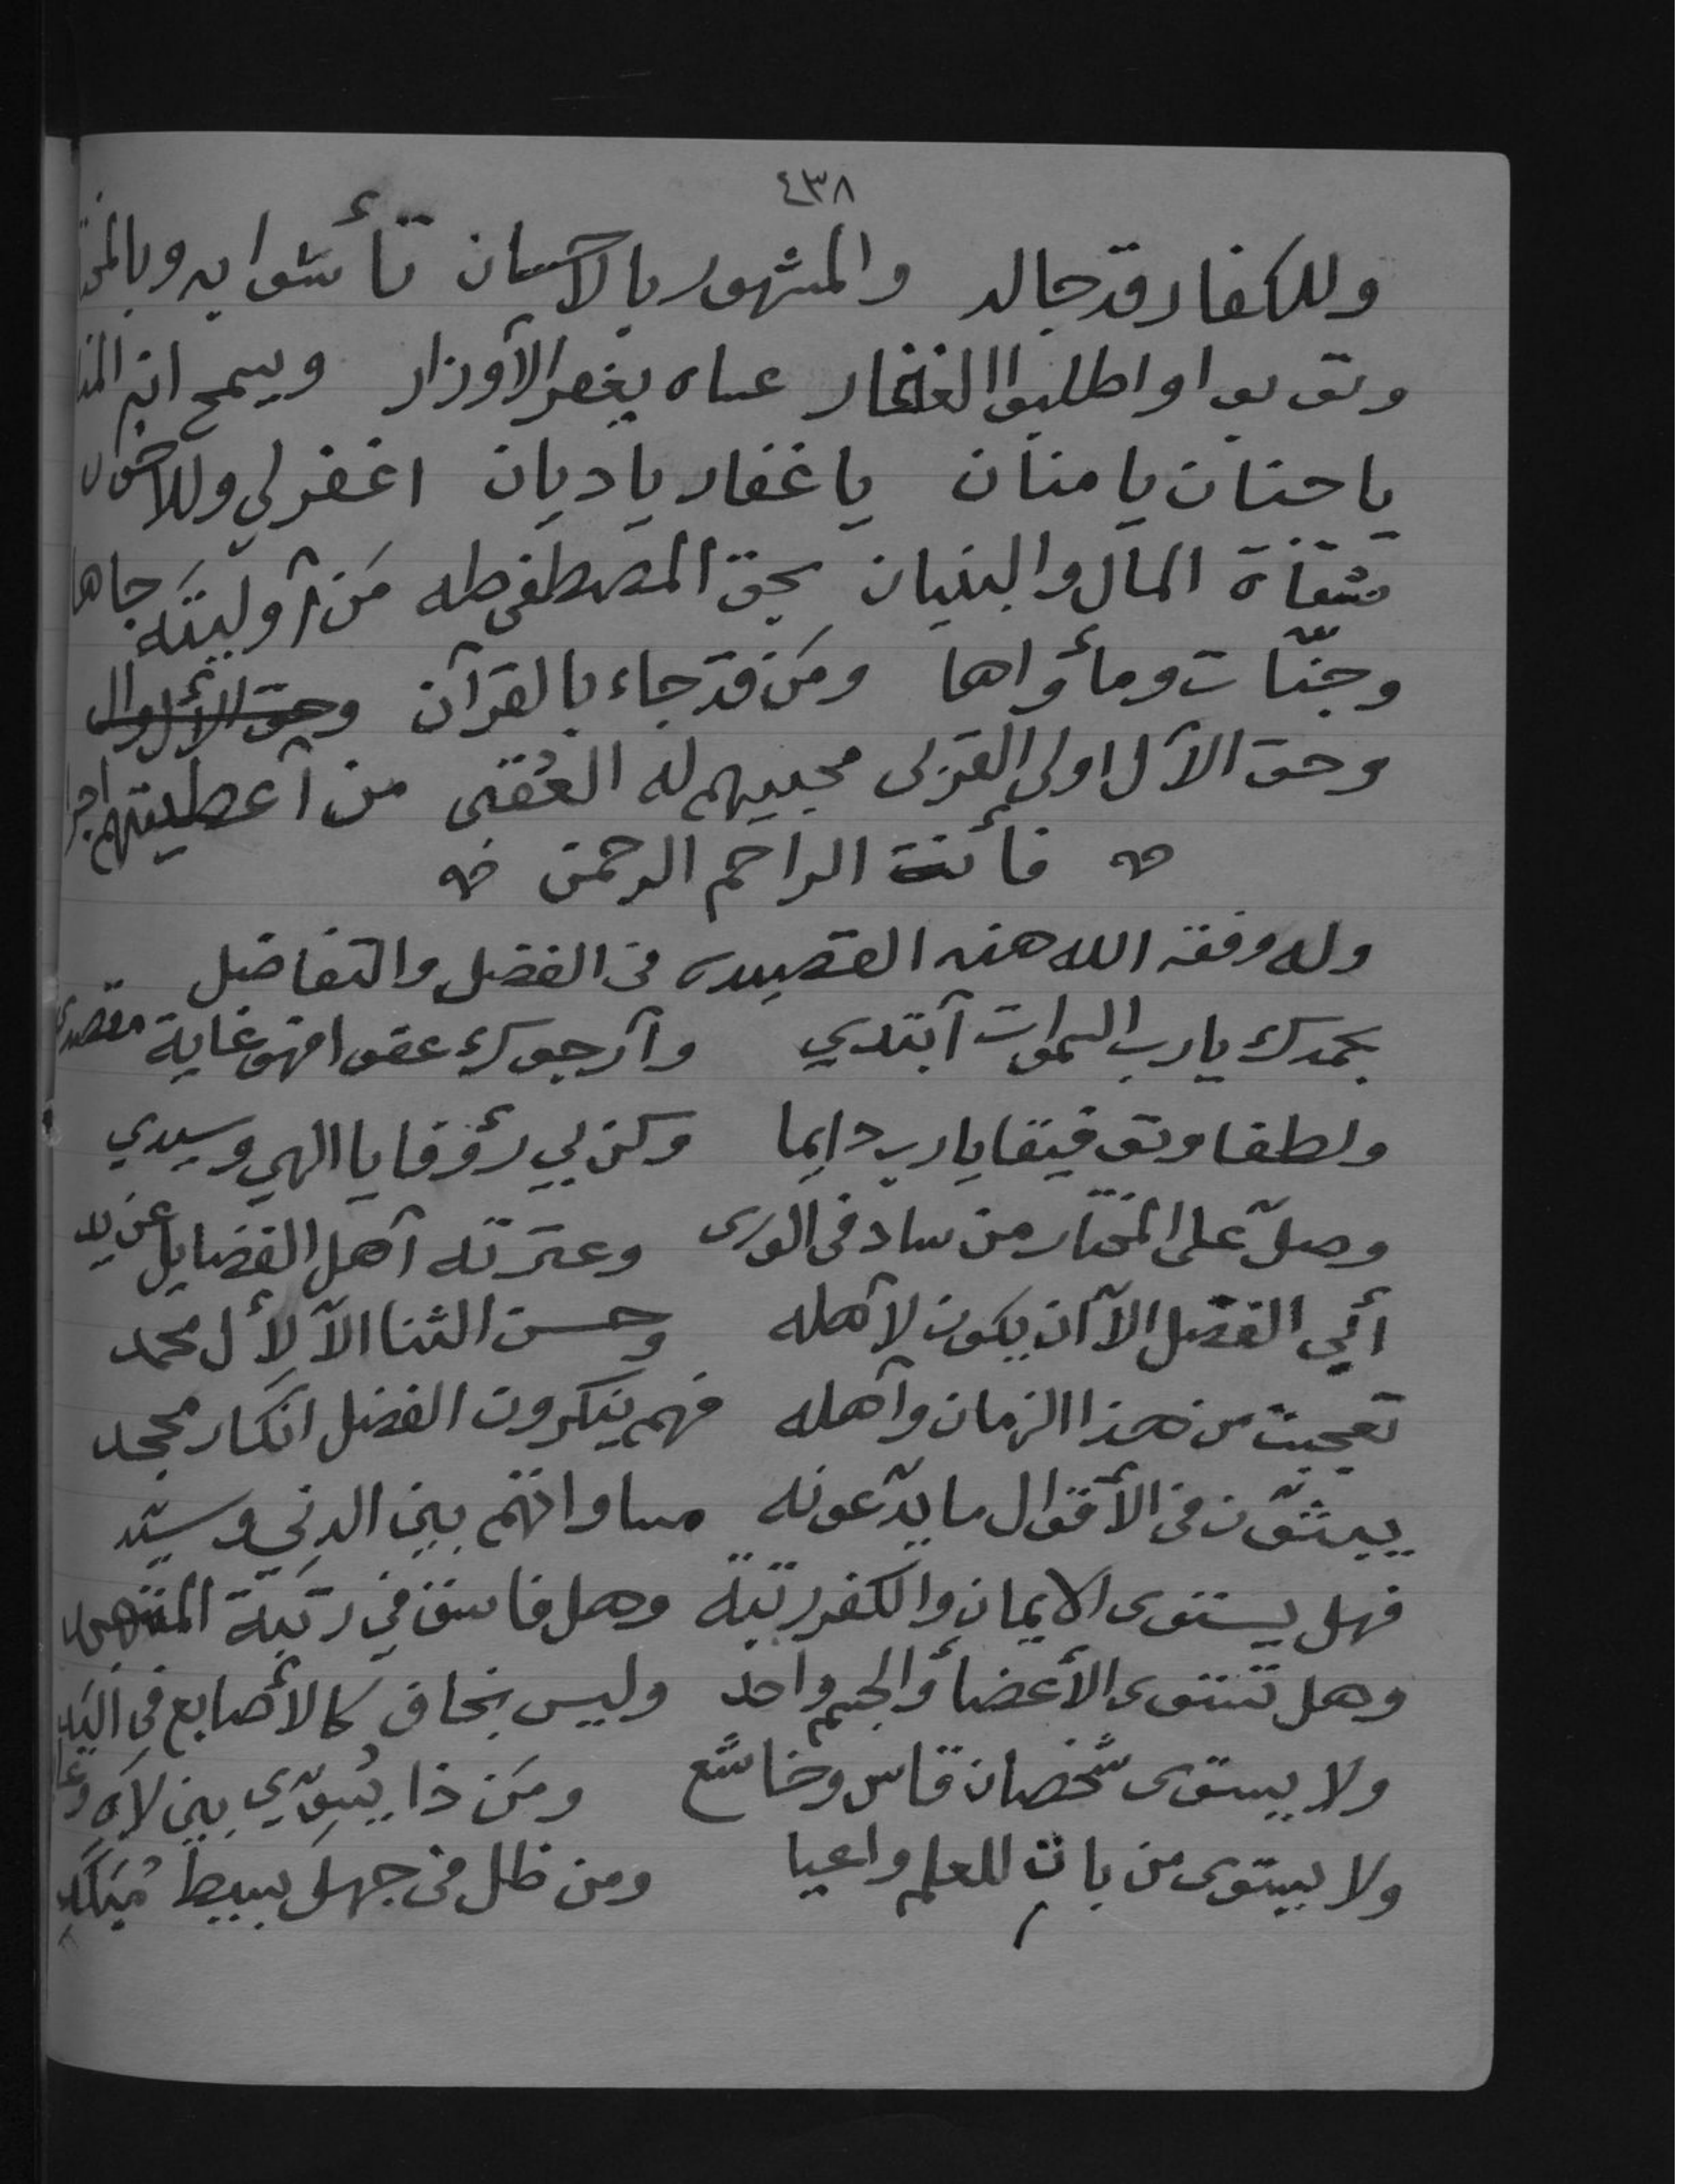 ٤٣٨
وللكفار قد جالد والمشهور بالآسان تأسّوا به وبالمختا
وتوبوا واطلبوا الغفار عساه يغفر الآوزار ويسمح انه المنا
يا حنان يا منان يا غفار يا ديان اغفر لي وللاخوان
شقاة المال والبنيان بحق المصطفى طه مَن آوليتَه جاها
وجنّات ومأواها ومَن قد جاء بالقرآن
وحق الآل اولى القربى محبيهم له العُقبى من آعطيتهم اجرا
فأنت الراحم الرحمن
وله وفقه الله هذه القصيده في الفضل والتفاضل
بحمدك يا رب السموات آبتدي وآرجوك عفوا فهو غاية مقصدي
ولطفا وتوفيقا يا رب دايما وكن بي رؤوفا يا الهي وسيدي
وصلّ على المختار من ساد في الورى وعترته آهل الفضايل عن يد
أبي الفضل الآ آن يكون لآهله وحسن الثنا الآ لأل محمد
تعجبت من هذا الزمان وآهله فهم ينكرون الفضل انكار مجحد
يبيثّون في الأقوال ما يدّعونه مساواتهم بين الدني وسيّد
فهل يستوى الايمان والكفر رتبة وهل فاسق في رتبة المتهجد
وهل تستوى الأعضأ والجسم واحد وليس بخاف كالأصابع في اليَد
ولا يستوى شخصان قاس وخاشع ومَن ذا يُسوّي بين لاهَ
ولا يستوى من بات للعلم واعيا ومن ظل في جهل بسيط مُرَكَّبِ